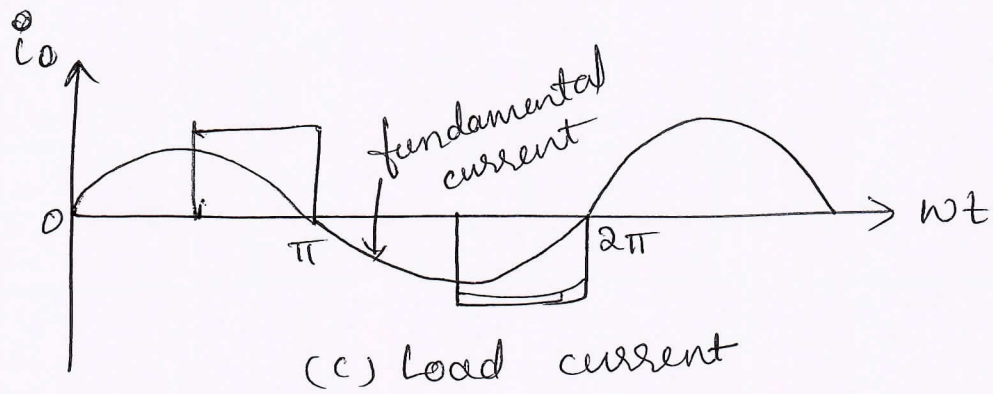 io
fundamental
current
0
π
2π
wt
(c) Load current